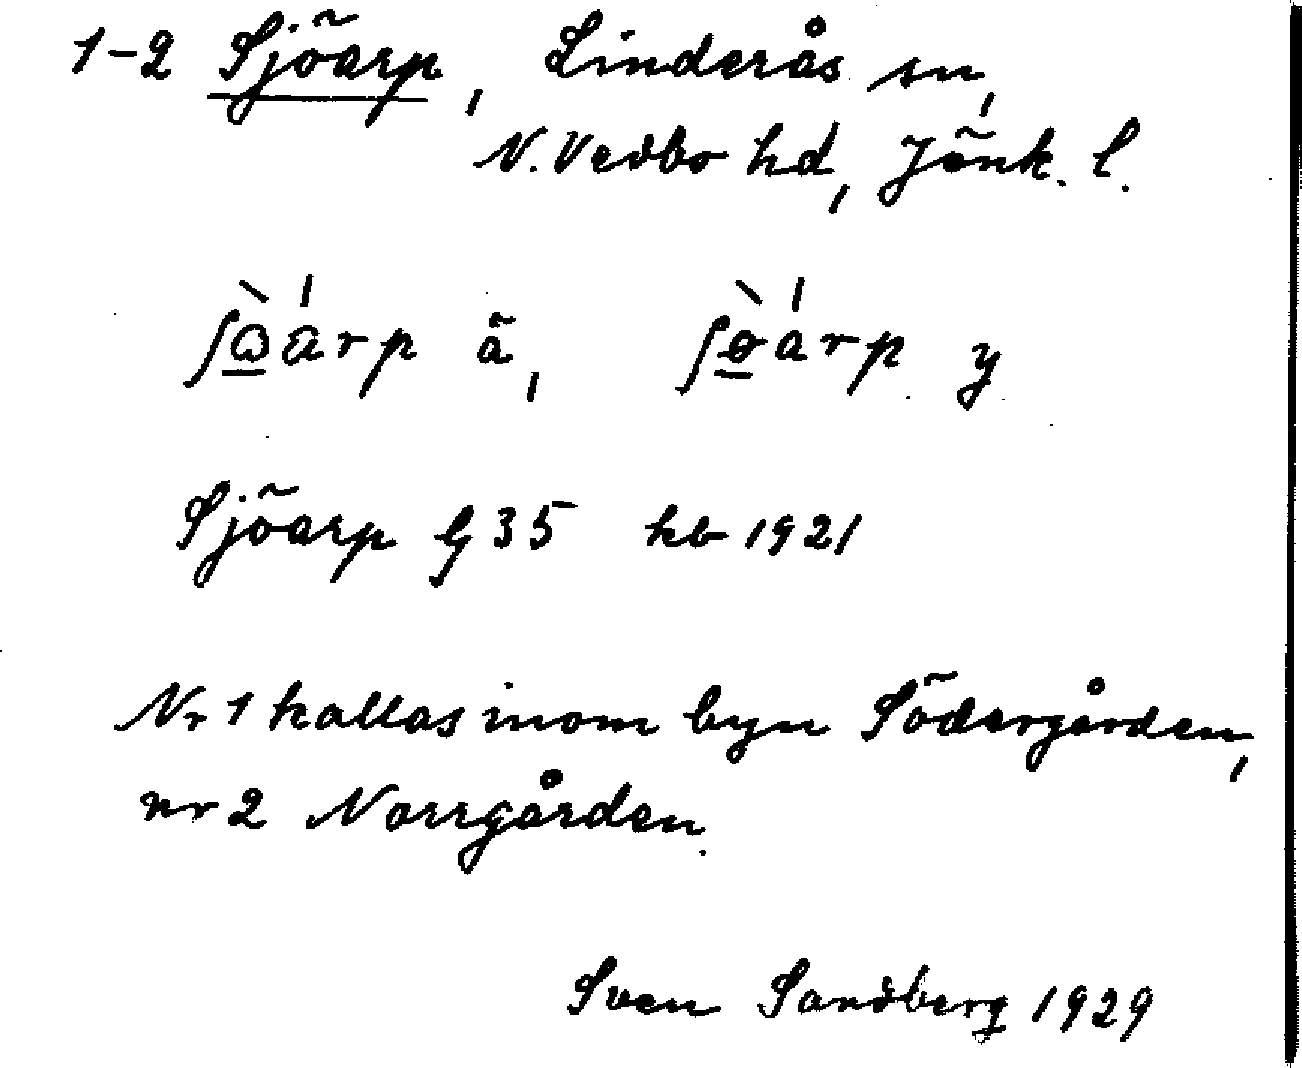 1-2 Sjöarp, Linderås sn,
N. Vedbo hd, Jönk. l.
Sjöarp gj 35 hb 1921
Nr 1 kallas inom byn Södergården,
nr 2 Norrgården.
Sven Sandberg 1929